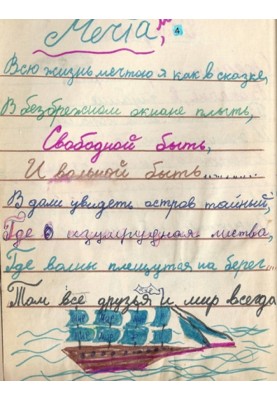 Мечта
4.
Всю жизнь мечтою я как в сказке,
В безбрежном океане плыть,
Свободной быть,
И вольной быть........
В дали увидеть остров тайный,
Где изумрудная листва,
Где волны плещутся на берег...
Там все друзья и мир всегда